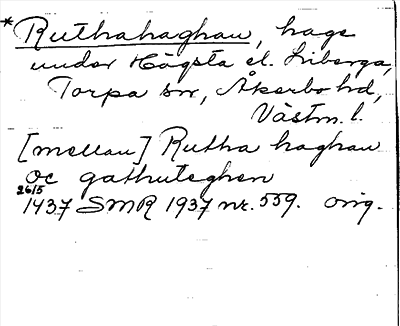 * Ruthahaghan, hage
under Högsta el. Liberga,
Torpa sn, Åkerbo hd,
Västm. l.
[mellan] Rutha haghan
oc gathuteghen
26/5
1437 SMR 1937 nr. 559. orig.